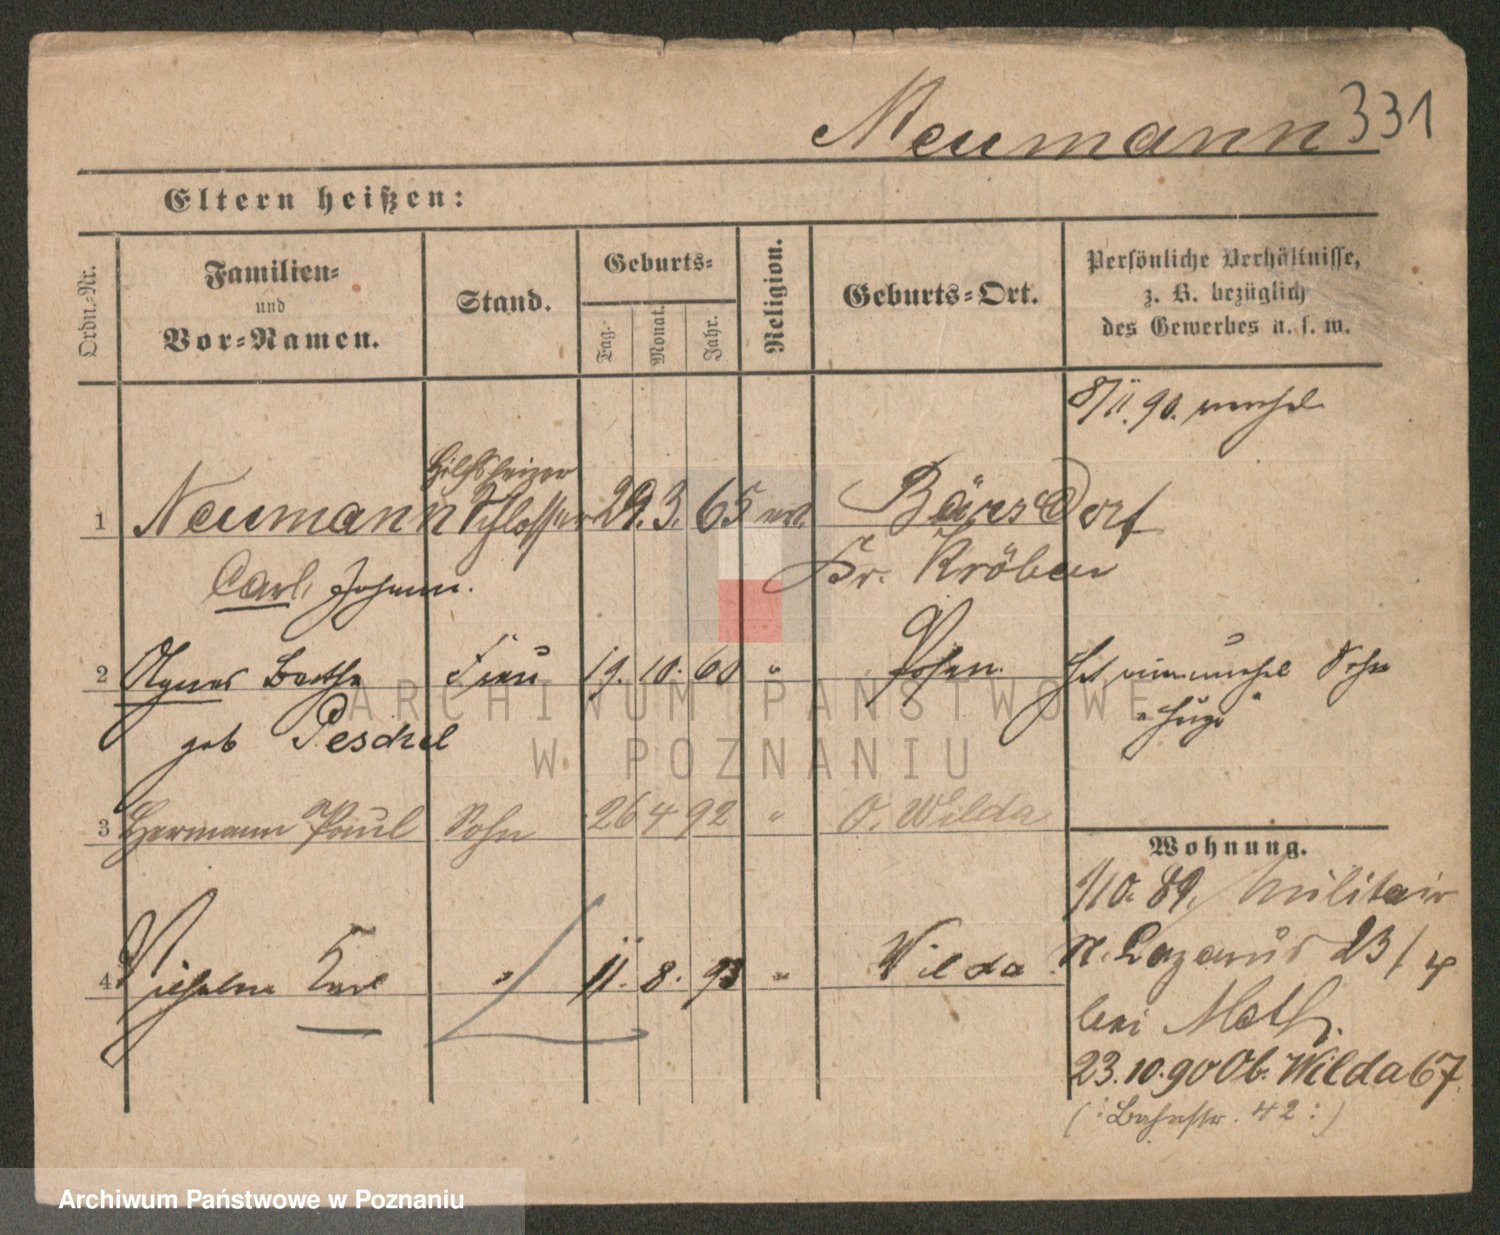 Neumann 331
Eltern heißen:
Ordn.-Nr.
Familien-
und
Vor-Namen.
Stand.
Geburts-
Tag.
Monat.
Jahr.
Religion.
Geburts-Ort.
Persönliche Verhältnisse,
z. B. bezüglich
des Gewerbes u. s. w.
8/11. 90.
Hilfsheizer
1 Neumann Schlosser 29. 3. 65 ev. Bärsdorf
Carl Johann. Kr. Kröben
2 Agnes Bertha Frau 19. 10. 60 " Posen. Hat Sohn
geb Peschel "Hugo"
3 Hermann Paul Sohn 26 4 92 " O. Wilda
Wohnung.
1/10. 89. Militair
4 Wilhelm Karl " 11. 8. 93 " Wilda St. Lazarus 23/4
bei
23.10.90 Ob. Wilda 67
(: Bahnstr. 42 :)
ARCHIWUM PAŃSTWOWE
W POZNANIU
Archiwum Państwowe w Poznaniu